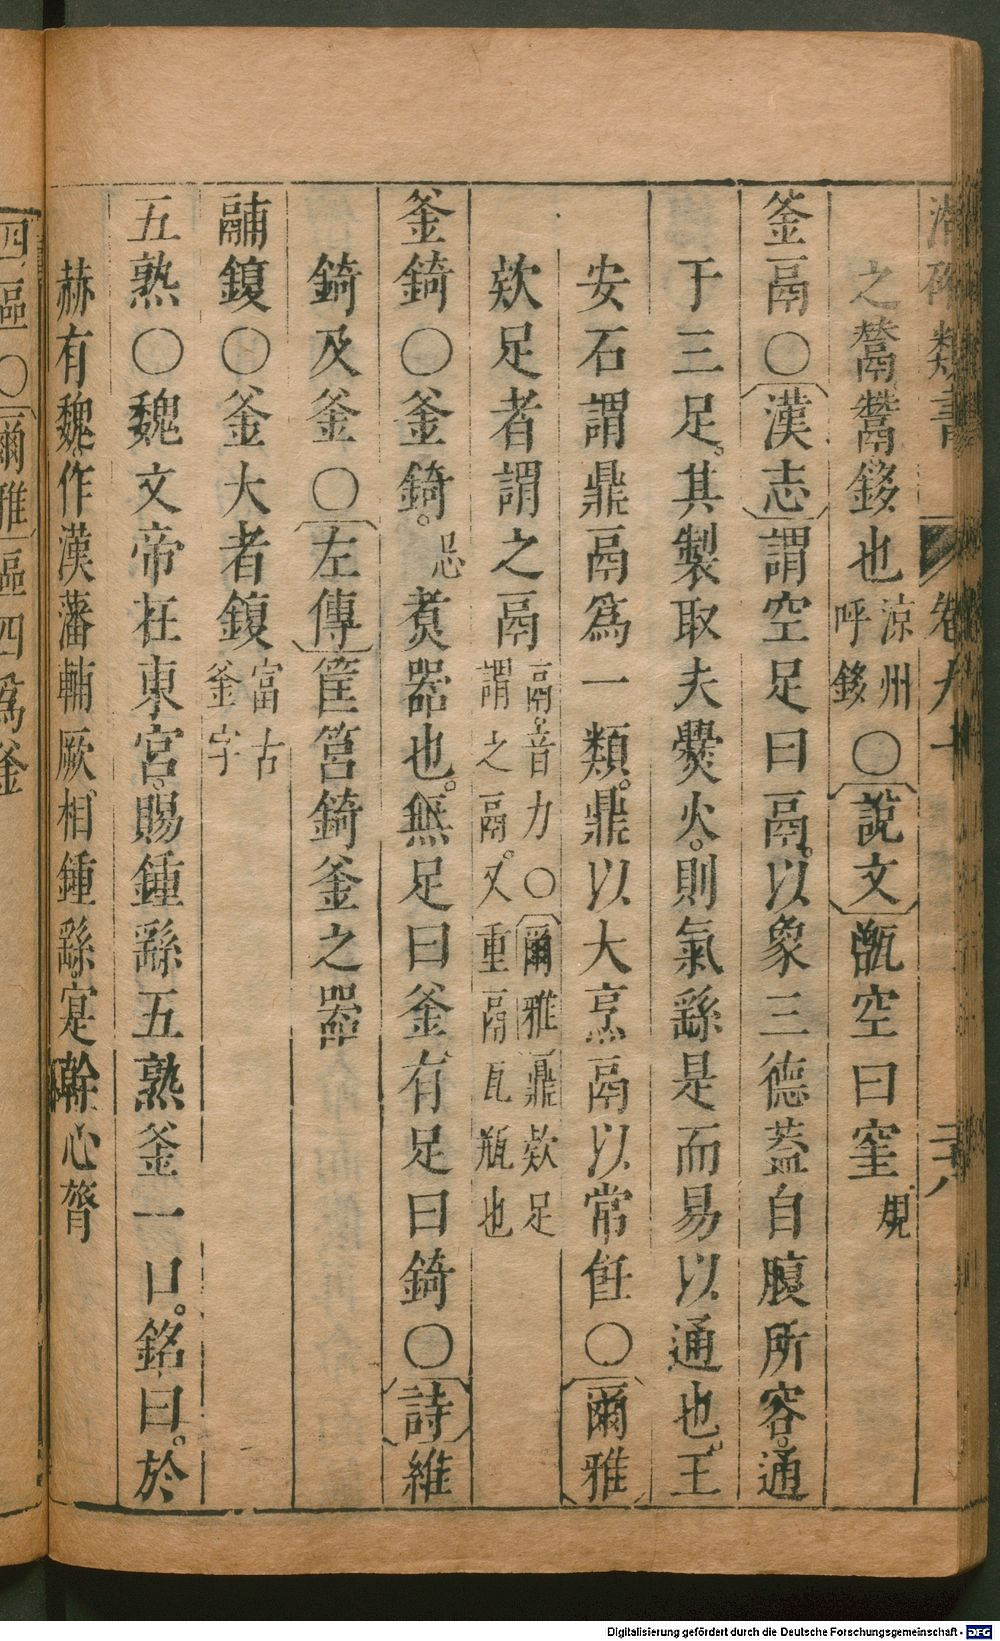 潛確類書 卷九十 二十八
之鬻鬻鉹也涼州呼鉹〇說文甑空曰窐䂓
釜鬲〇漢志謂空足曰鬲。以象三德。蓋自腹所容。通
于三足。其製取夫爨火。則氣繇是而易以通也。王
安石謂鼎鬲為一類。鼎以大烹鬲以常飪〇爾雅
款足者謂之鬲鬲音力〇爾雅鼎款足謂之鬲。又重鬲瓦瓶也
釜錡〇釜錡。忌煮器也。無足曰釜有足曰錡〇詩維
錡及釜〇左傳筐筥錡釜之器
鬴鍑〇釜大者鍑富古釜字
五熟〇魏文帝在東宮。賜鍾繇五熟釜一口。銘曰。於
赫有魏。作漢藩輔厥。相鍾繇。寔幹心膂
四區〇爾雅區四為釜
Digitalisierung gefördert durch die Deutsche Forschungsgemeinschaft - DFG